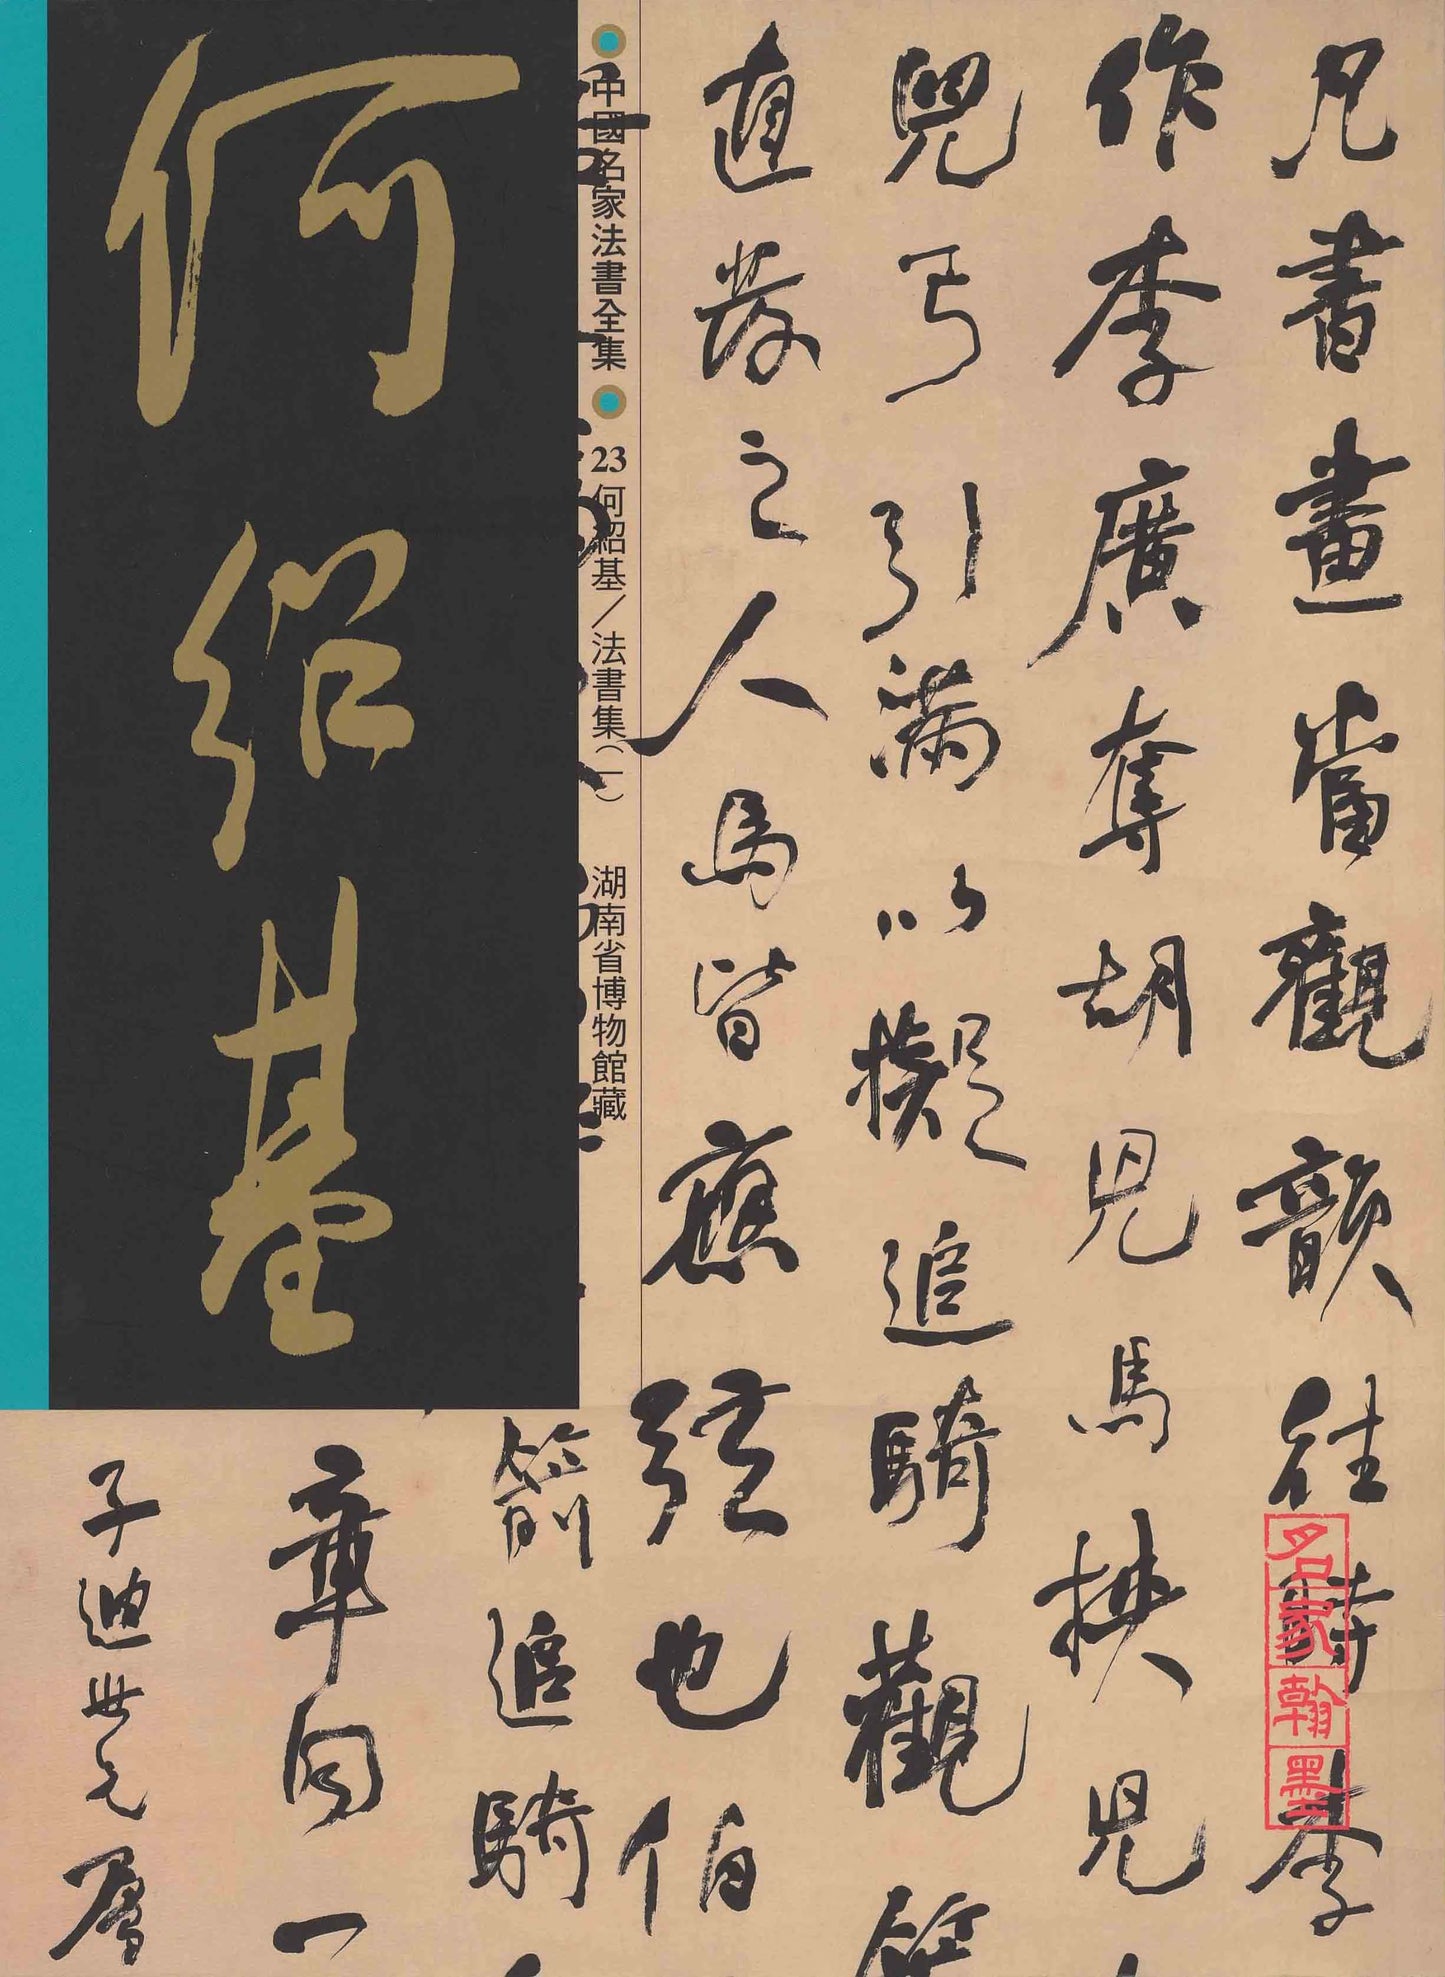 凡書畫當觀韻往時李
作李廣奪胡兒馬挾兒
兒弓引滿以擬追騎觀箭
直發之人馬皆應弦也伯
箭追騎
章向一
子迪世兄屬
中國名家法書全集
23 何紹基／法書集(一) 湖南省博物館藏
何紹基
名家翰墨